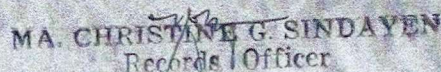 MA. CHRISTINE G. SINDAYEN
Records Officer